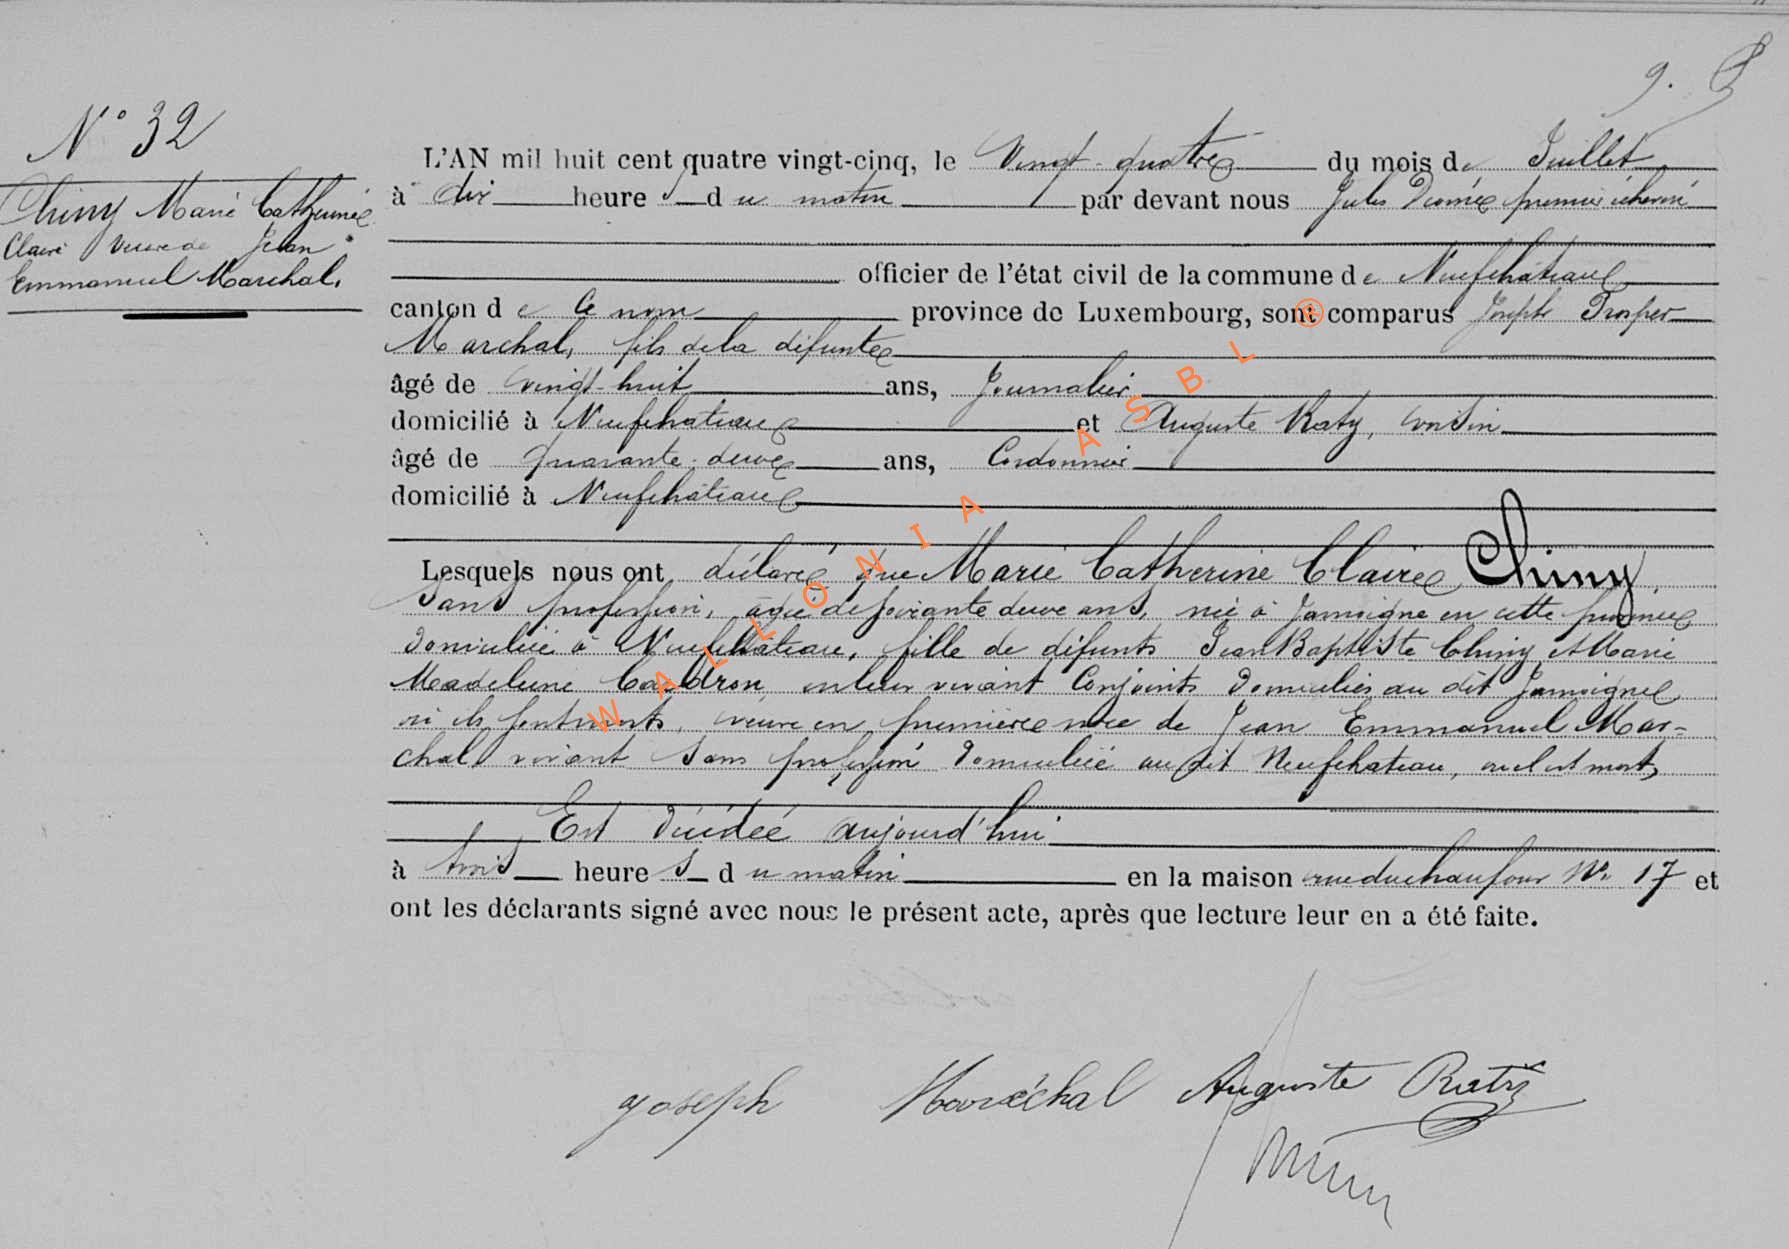 9.
N° 32
Chiny Marie Catherine
Claire veuve de Jean
Emmanuel Marchal.
L'AN mil huit cent quatre vingt-cinq, le Vingt-quatre du mois de Juillet
à dix heure s du matin par devant nous Jules premier échevin
officier de l'état civil de la commune de Neufchateau
canton de Ce nom province de Luxembourg, sont comparus Joseph Prosper
Marchal, fils de la défunte
âgé de vingt-huit ans, Journalier
domicilié à Neufchateau et Auguste Raty, voisin
âgé de quarante-deux ans, Cordonnier
domicilié à Neufchâteau
Lesquels nous ont déclaré que Marie Catherine Claire Chiny
Sans profession, âgée de soixante deux ans, née à Jamoigne en cette province
domiciliée à Neufchâteau, fille de défunts Jean Baptiste Chiny et Marie
Madeleine en leur vivant Conjoints domiciliés au dit Jamoigne
où ils sont morts, veuve en première noce de Jean Emmanuel Mar=
chal vivant sans profession domicilié au dit Neufchateau, où il est mort,
Est décédée aujourd'hui
à trois heure s du matin en la maison rue du chaufour N°. 17 et
ont les déclarants signé avec nous le présent acte, après que lecture leur en a été faite.
joseph Maréchal Auguste Raty
WALLONIA ASBL ®